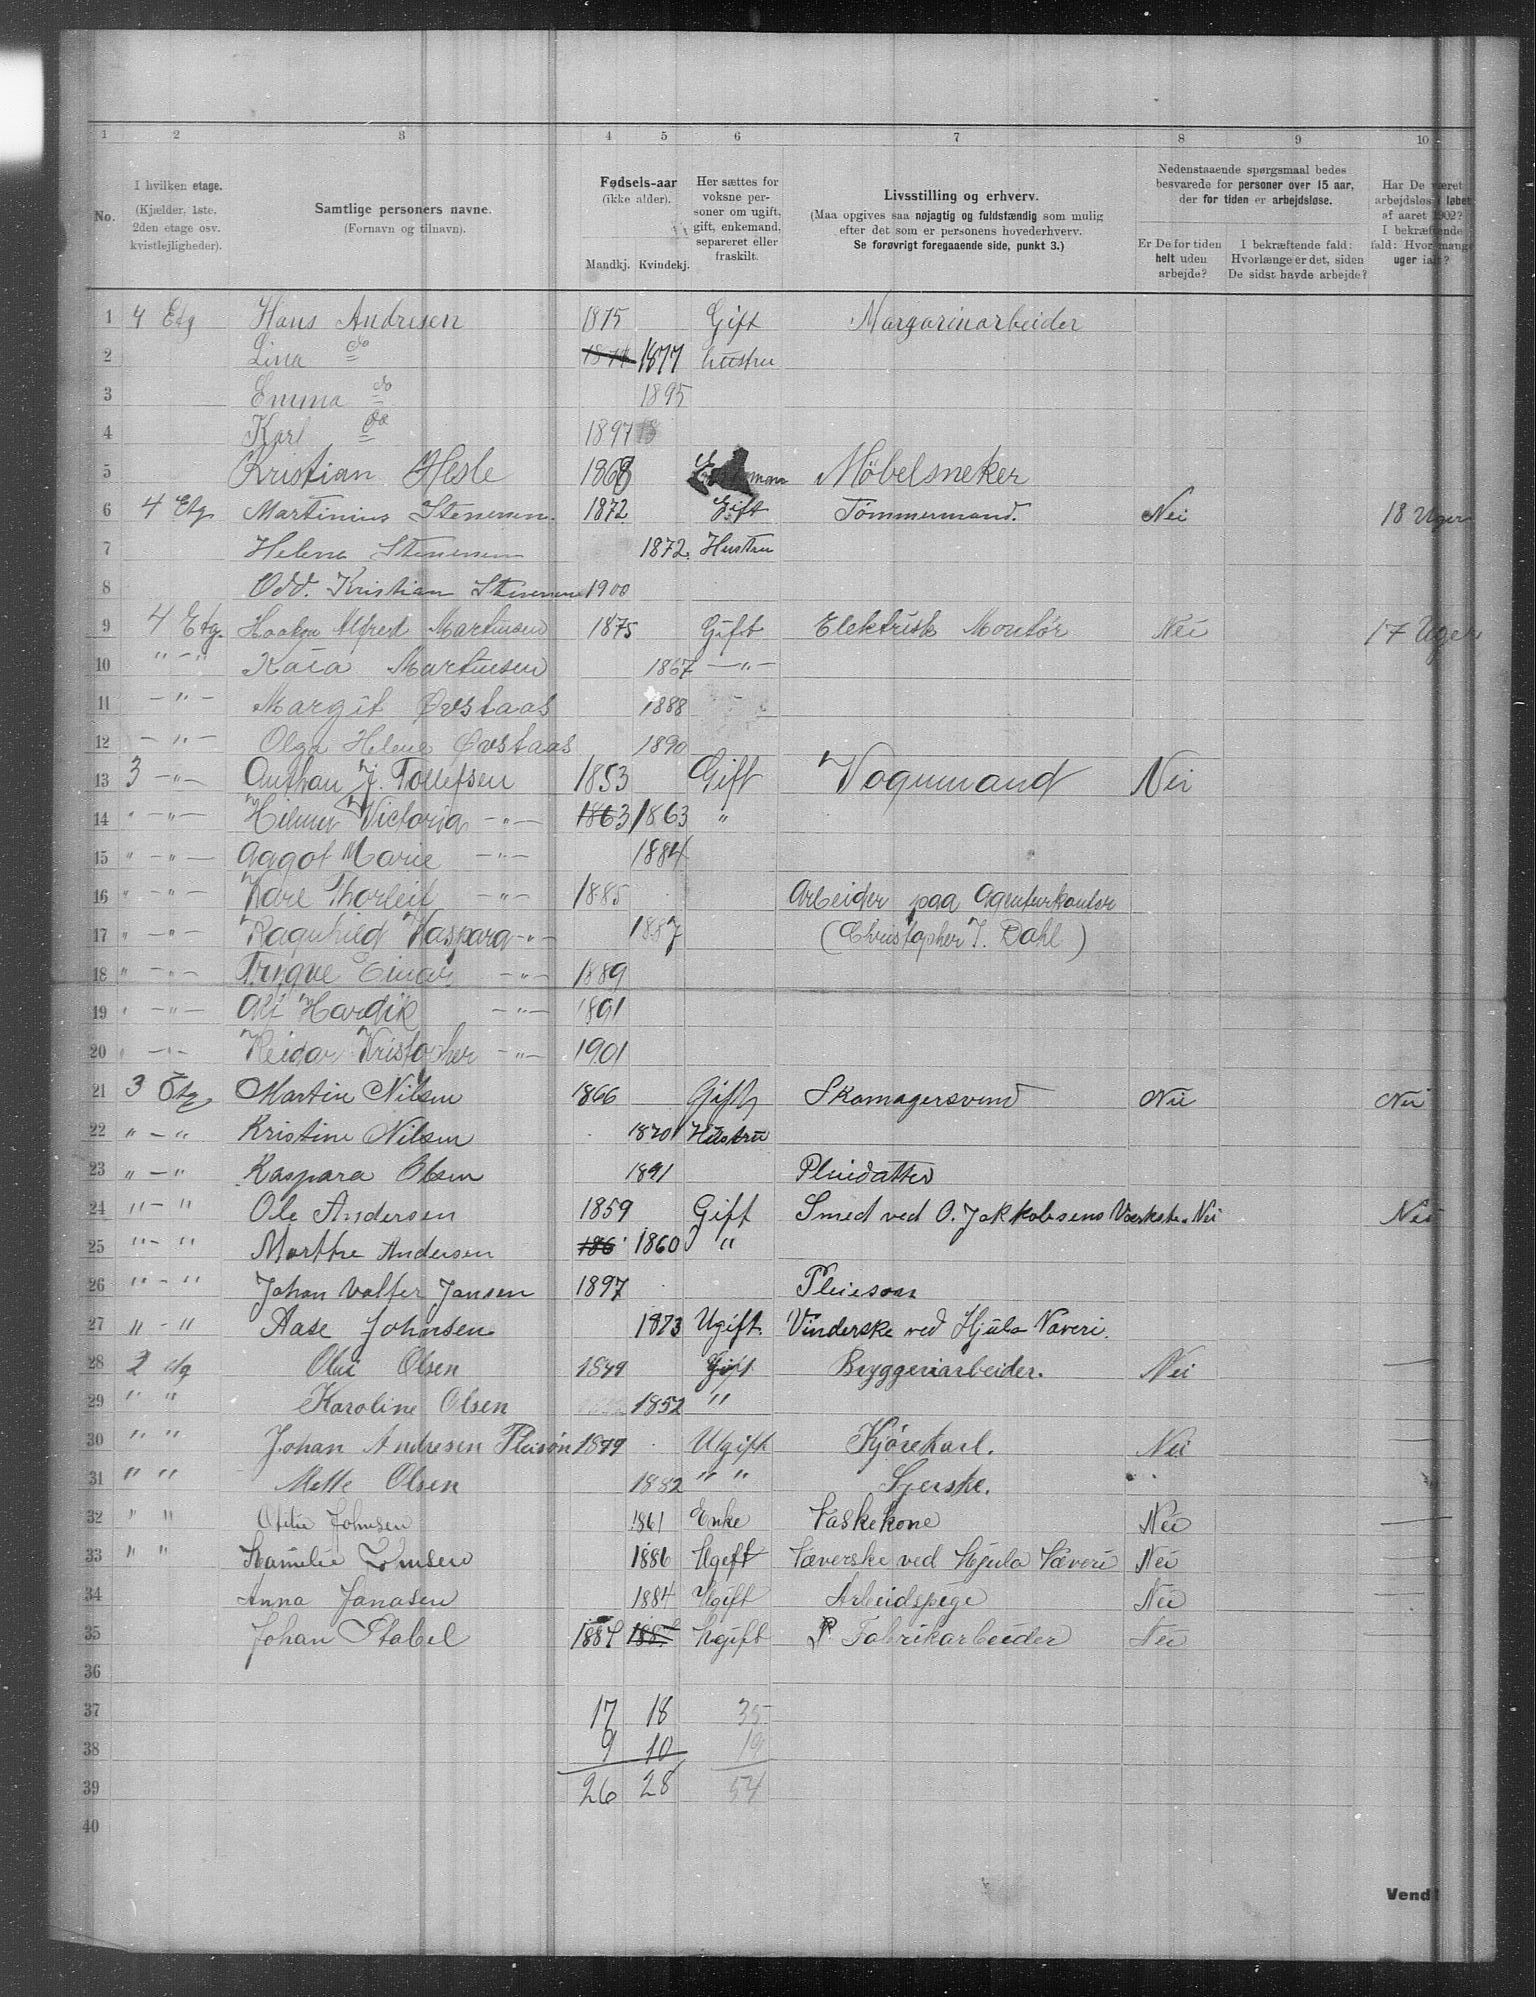 1 2 3 4 5 6 7 8 9 10
No.
I hvilken etage.
(Kjælder, 1ste.
2den etage osv.
kvistlejligheder).
Samtlige personers navne.
(Fornavn og tilnavn).
Fødsels-aar
(ikke alder).
Mandkj. Kvindekj.
Her sættes for
voksne per-
soner om ugift,
gift, enkemand,
separeret eller
fraskilt.
Livsstilling og erhverv.
(Maa opgives saa nøjagtig og fuldstændig som mulig
efter det som er personens hovederhverv.
Se forøvrigt foregaaende side, punkt 3.)
Nedenstaaende spørgsmaal bedes
besvarede for personer over 15 aar,
der for tiden er arbejdsløse.
Er De for tiden
helt uden
arbejde?
I bekræftende fald:
Hvorlænge er det, siden
De sidst havde arbejde?
Har De været
arbejdsløs i løbet
af aaret 1902?
I bekræftende
fald: Hvor mange
uger ialt?
1 4 Etg Hans Andresen 1875 Gift Margarinarbeider
2 Lina do 1877 hustru
3 Emma do 1895
4 Karl do 1897
5 Kristian Hesle 1868 Møbelsneker
6 4 Etg Martinius Stenersen. 1872 Gift Tömmermand. Nei 18 Uger
7 Helene Stenersen 1872. Hustru
8 Odd. Kristian Stenersen 1900
9 4 Etg. Haakon Alfred Martinsen 1875 Gift Elektrisk Montør Nei 17 Uger
10 " - " Kaia Martinsen 1867 - " -
11 - " - Margit Øvstaas 1888
12 - " - Olga Helene Øvstaas 1890
13 3 - " - Anthon J. Tollefsen 1853 Gift Vognmand Nei
14 " - " - Hilma Victoria - " - 1863 1863 "
15 " - " - Aagot Marie - " - 1884
16 " - " - Kare Thorleif - " - 1885 Arbeider paa Agenturkontor
17 " - " - Ragnhild Kaspara - " - 1887 (Christopher J. Dahl)
18 " - " - Trygve Einar - " - 1889
19 " - " - Alf Hardik - " - 1891
20 " - " - Reidar Kristopher - " - 1901
21 3 Etg Martin Nilsen 1866 Gift Skomagersvend Nei Nei
22 " - " Kristine Nilsen 1870 Hustru
23 " - " Kaspara Olsen 1891 Pleiedatter
24 " - " Ole Andersen 1859 Gift Smed ved O. Jakkobsens Værkste. Nei Nei
25 " - " Marthe Andersen 186 1860 "
26 " - " Johan Valter Jansen 1897 Pleiesøn
27 " - " Aase Johnsen 1873 Ugift. Vinderske ved Hjula Væveri.
28 2 etg Olai Olsen 1849 Gift Bryggeriarbeider. Nei —
29 " " Karoline Olsen 1852 "
30 " " Johan Andresen Pleisøn 1879 Ugift Kjørekarl. Nei —
31 " " Mette Olsen 1882 " " Syerske. —
32 " " Otilie Johnsen 1861 Enke Vaskekone Nei —
33 " " Kamilie Johnsen 1886 Ugift Væverske ved Hjula Væveri Nei —
34 Anna Janasen 1884 Ugift Arbeidspige Nei —
35 Johan Stabel 1884 Ugift Fabrikarbeider Nei —
36
37 17 18 35
38 9 10 19
39 26 28 54
40
Vend!